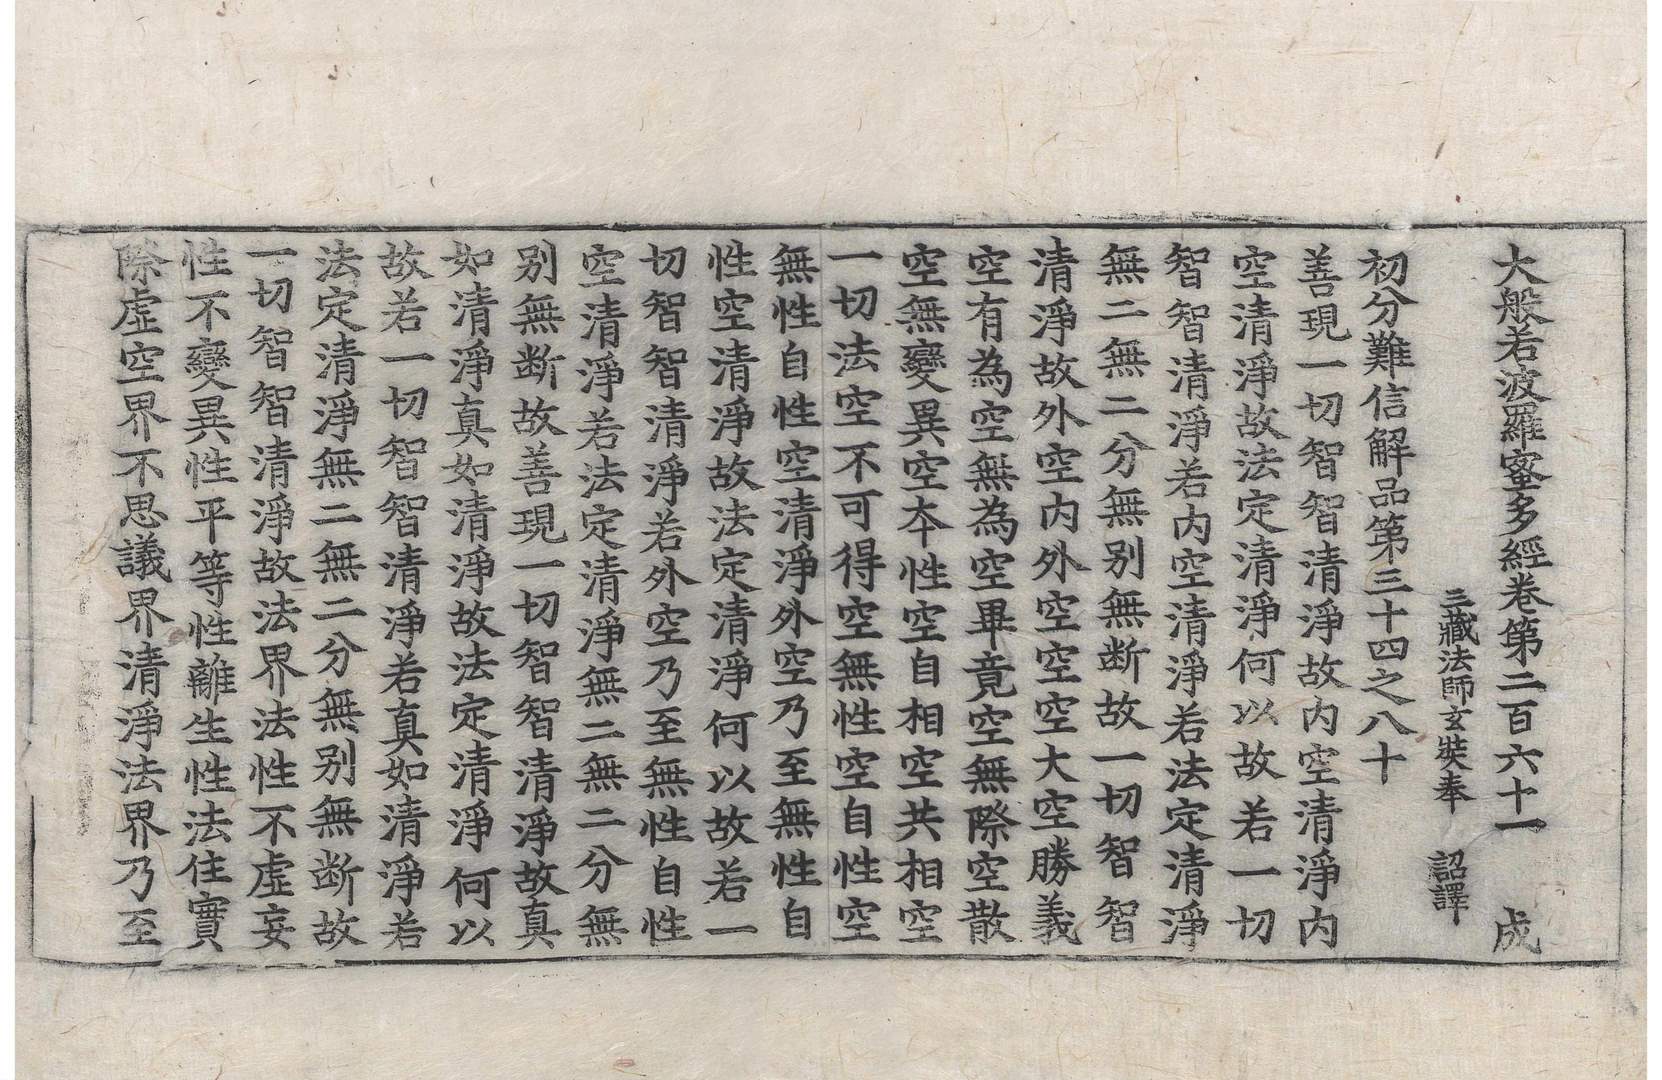 大般若波羅蜜多經卷第二百六十一 成
三藏法師玄奘奉 詔譯
初分難信解品第三十四之八十
善現一切智智清淨故內空清淨內
空清淨故法定清淨何以故若一切
智智清淨若內空清淨若法定清淨
無二無二分無別無斷故一切智智
清淨故外空內外空空空大空勝義
空有為空無為空畢竟空無際空散
空無變異空本性空自相空共相空
一切法空不可得空無性空自性空
無性自性空清淨外空乃至無性自
性空清淨故法定清淨何以故若一
切智智清淨若外空乃至無性自性
空清淨若法定清淨無二無二分無
別無斷故善現一切智智清淨故真
如清淨真如清淨故法定清淨何以
故若一切智智清淨若真如清淨若
法定清淨無二無二分無別無斷故
一切智智清淨故法界法性不虛妄
性不變異性平等性離生性法住實
際虛空界不思議界清淨法界乃至